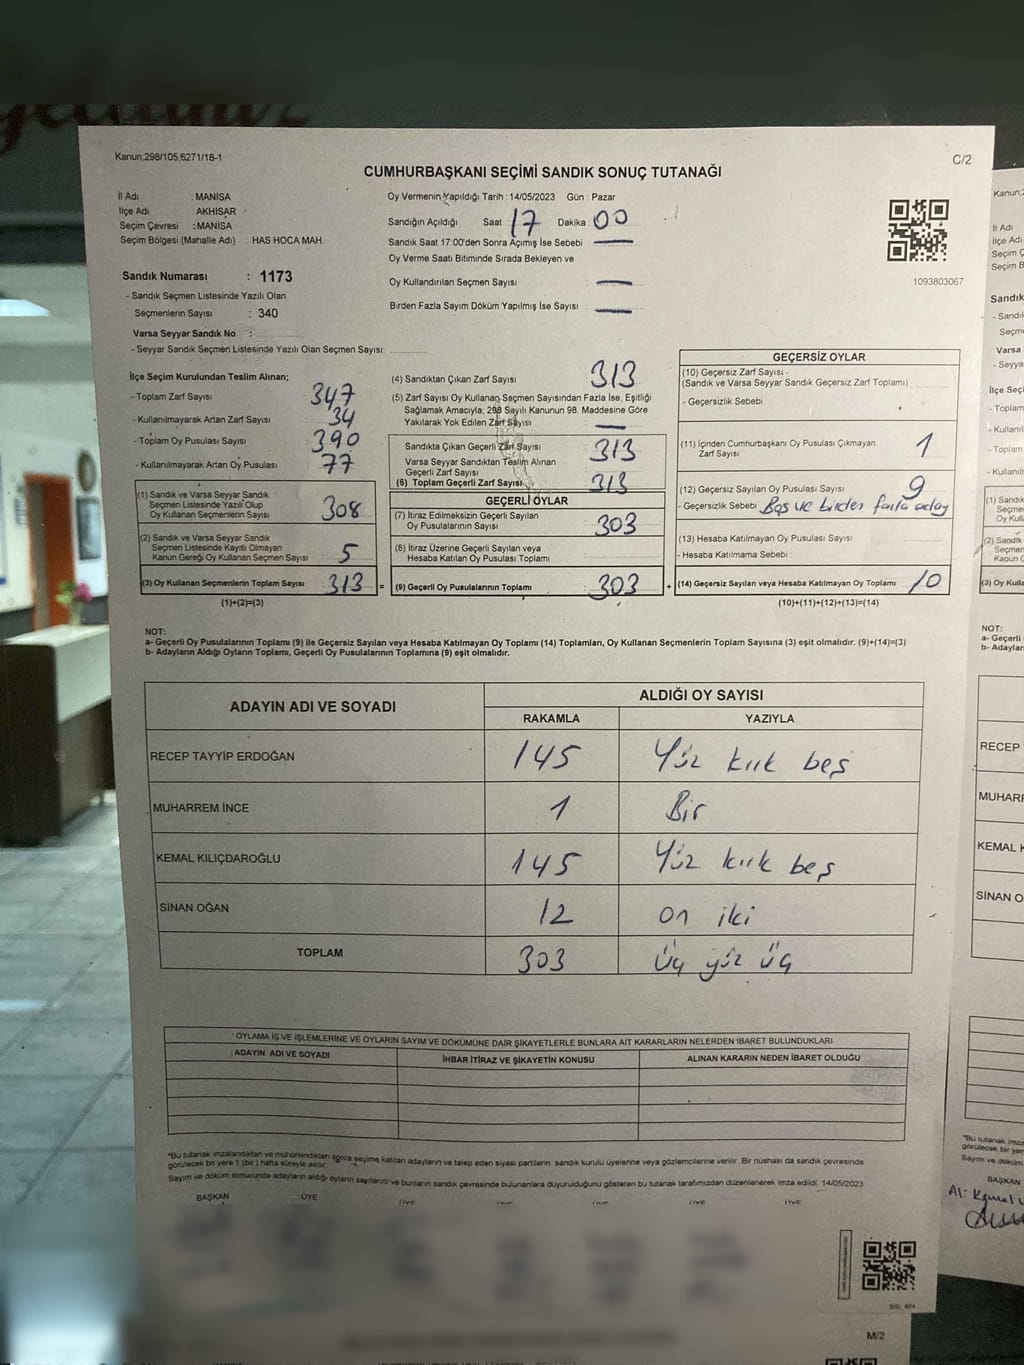 Kanun;298/105,6271/18-1
C/2
CUMHURBAŞKANI SEÇİMİ SANDIK SONUÇ TUTANAĞI
İl Adı : MANİSA
İlçe Adı : AKHİSAR
Seçim Çevresi : MANİSA
Seçim Bölgesi (Mahalle Adı) : HAS HOCA MAH.
Sandık Numarası : 1173
- Sandık Seçmen Listesinde Yazılı Olan
Seçmenlerin Sayısı : 340
Varsa Seyyar Sandık No :
- Seyyar Sandık Seçmen Listesinde Yazılı Olan Seçmen Sayısı:
Oy Vermenin Yapıldığı Tarih : 14/05/2023 Gün : Pazar
Sandığın Açıldığı Saat 17 Dakika : 00
Sandık Saat 17:00'den Sonra Açılmış İse Sebebi —
Oy Verme Saati Bitiminde Sırada Bekleyen ve
Oy Kullandırılan Seçmen Sayısı : —
Birden Fazla Sayım Döküm Yapılmış İse Sayısı : —
1093803067
İlçe Seçim Kurulundan Teslim Alınan;
- Toplam Zarf Sayısı : 347
- Kullanılmayarak Artan Zarf Sayısı : 34
- Toplam Oy Pusulası Sayısı : 390
- Kullanılmayarak Artan Oy Pusulası : 77
(1) Sandık ve Varsa Seyyar Sandık
Seçmen Listesinde Yazılı Olup
Oy Kullanan Seçmenlerin Sayısı : 308
(2) Sandık ve Varsa Seyyar Sandık
Seçmen Listesinde Kayıtlı Olmayan
Kanun Gereği Oy Kullanan Seçmen Sayısı : 5
(3) Oy Kullanan Seçmenlerin Toplam Sayısı : 313 =
(1)+(2)=(3)
(4) Sandıktan Çıkan Zarf Sayısı : 313
(5) Zarf Sayısı Oy Kullanan Seçmen Sayısından Fazla İse, Eşitliği
Sağlamak Amacıyla; 298 Sayılı Kanunun 98. Maddesine Göre
Yakılarak Yok Edilen Zarf Sayısı : —
Sandıkta Çıkan Geçerli Zarf Sayısı : 313
Varsa Seyyar Sandıktan Teslim Alınan
Geçerli Zarf Sayısı
(6) Toplam Geçerli Zarf Sayısı : 313
GEÇERLİ OYLAR
(7) İtiraz Edilmeksizin Geçerli Sayılan
Oy Pusulalarının Sayısı : 303
(8) İtiraz Üzerine Geçerli Sayılan veya
Hesaba Katılan Oy Pusulası Toplamı :
(9) Geçerli Oy Pusulalarının Toplamı : 303 +
GEÇERSİZ OYLAR
(10) Geçersiz Zarf Sayısı
(Sandık ve Varsa Seyyar Sandık Geçersiz Zarf Toplamı)
- Geçersizlik Sebebi
(11) İçinden Cumhurbaşkanı Oy Pusulası Çıkmayan
Zarf Sayısı : 1
(12) Geçersiz Sayılan Oy Pusulası Sayısı : 9
- Geçersizlik Sebebi Boş ve birden fazla aday
(13) Hesaba Katılmayan Oy Pusulası Sayısı :
- Hesaba Katılmama Sebebi :
(14) Geçersiz Sayılan veya Hesaba Katılmayan Oy Toplamı : 10
(10)+(11)+(12)+(13)=(14)
NOT:
a- Geçerli Oy Pusulalarının Toplamı (9) ile Geçersiz Sayılan veya Hesaba Katılmayan Oy Toplamı (14) Toplamları, Oy Kullanan Seçmenlerin Toplam Sayısına (3) eşit olmalıdır. (9)+(14)=(3)
b- Adayların Aldığı Oyların Toplamı, Geçerli Oy Pusulalarının Toplamına (9) eşit olmalıdır.
ADAYIN ADI VE SOYADI
ALDIĞI OY SAYISI
RAKAMLA YAZIYLA
RECEP TAYYİP ERDOĞAN 145 Yüz kırk beş
MUHARREM İNCE 1 Bir
KEMAL KILIÇDAROĞLU 145 Yüz kırk beş
SİNAN OĞAN 12 on iki
TOPLAM 303 üç yüz üç
OYLAMA İŞ VE İŞLEMLERİNE VE OYLARIN SAYIM VE DÖKÜMÜNE DAİR ŞİKAYETLERLE BUNLARA AİT KARARLARIN NELERDEN İBARET BULUNDUKLARI
ADAYIN ADI VE SOYADI İHBAR İTİRAZ VE ŞİKAYETİN KONUSU ALINAN KARARIN NEDEN İBARET OLDUĞU
*Bu tutanak imzalandıktan ve mühürlendikten sonra seçime katılan adayların ve talep eden siyasi partilerin sandık kurulu üyelerine veya gözlemcilerine verilir. Bir nüshası da sandık çevresinde
görülecek bir yere 1 (bir) hafta süreyle asılır.
Sayım ve döküm sonucunda adayların aldığı oyların sayılarını ve bunların sandık çevresinde bulunanlara duyurulduğunu gösteren bu tutanak tarafımızdan düzenlenerek imza edildi. 14/05/2023
BAŞKAN ÜYE ÜYE ÜYE ÜYE ÜYE ÜYE
M/2
Kanun:
İl Adı
İlçe Adı
Seçim Ç
Seçim B
Sandık
- Sandı
Seçm
Varsa
- Seyya
İlçe Seçi
- Toplam
- Kullanı
- Toplam
- Kullanı
(1) Sandık
Seçmen
Oy Kulla
(2) Sandık
Seçmen
Kanun G
(3) Oy Kulla
NOT:
a- Geçerli
b- Adayları
RECEP
MUHARR
KEMAL K
SİNAN O
*Bu tutanak imza
görülecek bir yer
Sayım ve döküm
BAŞKAN
Ali Kemal